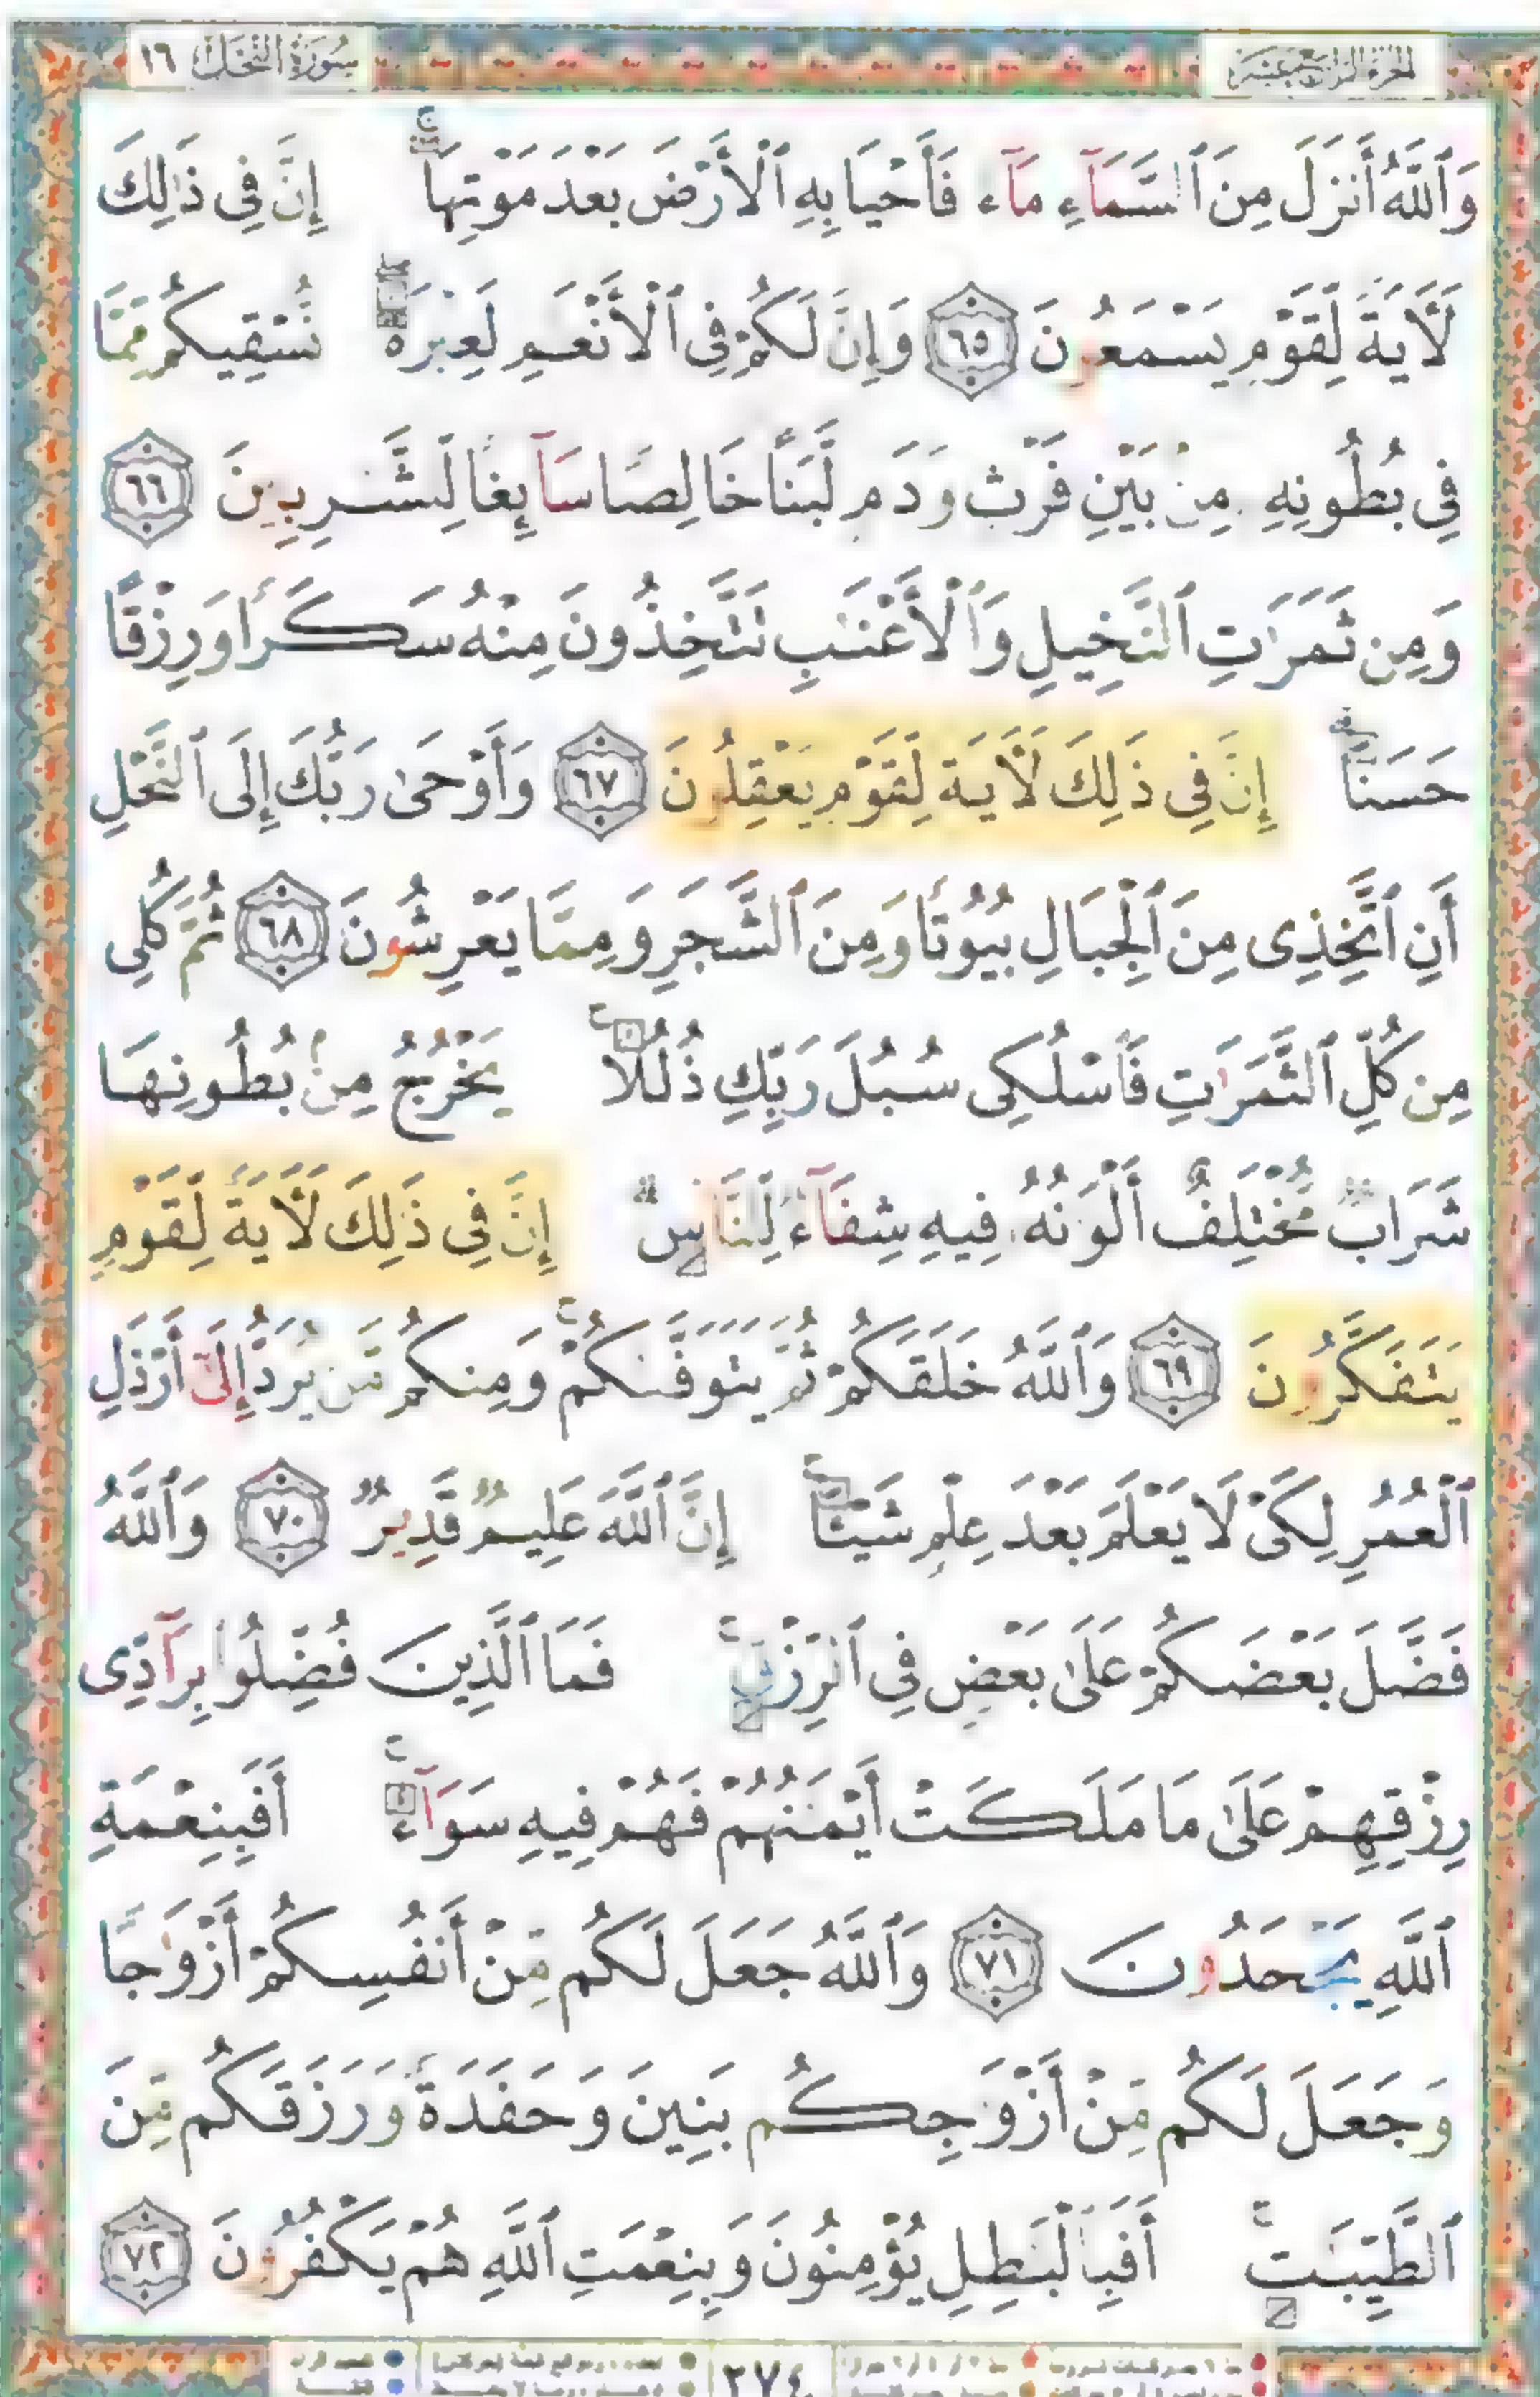 سُورَةُ النَّحْلِ ١٦
الجزء الرابع عشر
وَٱللَّهُ أَنزَلَ مِنَ ٱلسَّمَآءِ مَآءً فَأَحْيَا بِهِ ٱلْأَرْضَ بَعْدَ مَوْتِهَآ ۚ إِنَّ فِى ذَٰلِكَ
لَءَايَةً لِّقَوْمٍ يَسْمَعُونَ ٦٥ وَإِنَّ لَكُمْ فِى ٱلْأَنْعَـٰمِ لَعِبْرَةً ۖ نُّسْقِيكُم مِّمَّا
فِى بُطُونِهِۦ مِنۢ بَيْنِ فَرْثٍ وَدَمٍ لَّبَنًا خَالِصًا سَآئِغًا لِّلشَّـٰرِبِينَ ٦٦
وَمِن ثَمَرَٰتِ ٱلنَّخِيلِ وَٱلْأَعْنَـٰبِ تَتَّخِذُونَ مِنْهُ سَكَرًا وَرِزْقًا
حَسَنًا ۗ إِنَّ فِى ذَٰلِكَ لَءَايَةً لِّقَوْمٍ يَعْقِلُونَ ٦٧ وَأَوْحَىٰ رَبُّكَ إِلَى ٱلنَّحْلِ
أَنِ ٱتَّخِذِى مِنَ ٱلْجِبَالِ بُيُوتًا وَمِنَ ٱلشَّجَرِ وَمِمَّا يَعْرِشُونَ ٦٨ ثُمَّ كُلِى
مِن كُلِّ ٱلثَّمَرَٰتِ فَٱسْلُكِى سُبُلَ رَبِّكِ ذُلُلًا ۚ يَخْرُجُ مِنۢ بُطُونِهَا
شَرَابٌ مُّخْتَلِفٌ أَلْوَٰنُهُۥ فِيهِ شِفَآءٌ لِّلنَّاسِ ۗ إِنَّ فِى ذَٰلِكَ لَءَايَةً لِّقَوْمٍ
يَتَفَكَّرُونَ ٦٩ وَٱللَّهُ خَلَقَكُمْ ثُمَّ يَتَوَفَّىٰكُمْ ۚ وَمِنكُم مَّن يُرَدُّ إِلَىٰٓ أَرْذَلِ
ٱلْعُمُرِ لِكَىْ لَا يَعْلَمَ بَعْدَ عِلْمٍ شَيْـًٔا ۚ إِنَّ ٱللَّهَ عَلِيمٌ قَدِيرٌ ٧٠ وَٱللَّهُ
فَضَّلَ بَعْضَكُمْ عَلَىٰ بَعْضٍ فِى ٱلرِّزْقِ ۚ فَمَا ٱلَّذِينَ فُضِّلُوا۟ بِرَآدِّى
رِزْقِهِمْ عَلَىٰ مَا مَلَكَتْ أَيْمَـٰنُهُمْ فَهُمْ فِيهِ سَوَآءٌ ۚ أَفَبِنِعْمَةِ
ٱللَّهِ يَجْحَدُونَ ٧١ وَٱللَّهُ جَعَلَ لَكُم مِّنْ أَنفُسِكُمْ أَزْوَٰجًا
وَجَعَلَ لَكُم مِّنْ أَزْوَٰجِكُم بَنِينَ وَحَفَدَةً وَرَزَقَكُم مِّنَ
ٱلطَّيِّبَـٰتِ ۚ أَفَبِٱلْبَـٰطِلِ يُؤْمِنُونَ وَبِنِعْمَتِ ٱللَّهِ هُمْ يَكْفُرُونَ ٧٢
٢٧٤